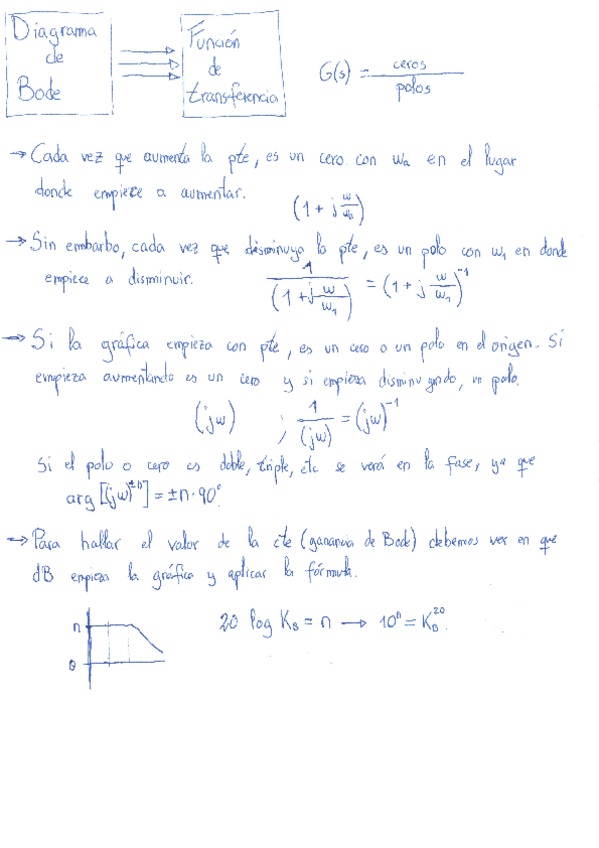 Diagrama
de
Bode
Función
de
transferencia
G(s) = ceros / polos
→ Cada vez que aumenta la pte, es un cero con ω₁ en el lugar
donde empiece a aumentar.
(1 + j ω/ω₁)
→ Sin embarbo, cada vez que disminuya la pte, es un polo con ω₁ en donde
empiece a disminuir.
1 / (1 + j ω/ω₁) = (1 + j ω/ω₁)⁻¹
→ Si la gráfica empieza con pte, es un cero o un polo en el origen. Si
empieza aumentando es un cero y si empieza disminuyendo, un polo.
(jω) ; 1/(jω) = (jω)⁻¹
Si el polo o cero es doble, triple, etc se verá en la fase, ya que
arg[(jω)^±n] = ±n·90°
→ Para hallar el valor de la cte (ganancia de Bode) debemos ver en que
dB empieza la gráfica y aplicar la fórmula.
n
0
20 log K_B = n → 10ⁿ = K_B²⁰.